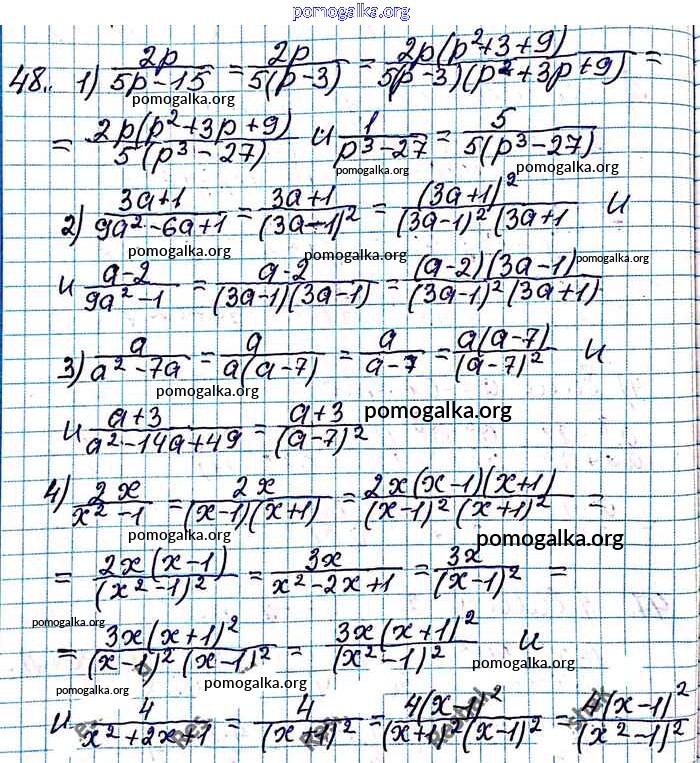 pomogalka.org
48. 1) 2p/(5p-15) = 2p/(5(p-3)) = 2p(p²+3+9)/(5(p-3)(p²+3p+9)) =
pomogalka.org
= 2p(p²+3p+9)/(5(p³-27)) и 1/(p³-27) = 5/(5(p³-27))
pomogalka.org pomogalka.org pomogalka.org
2) (3a+1)/(9a²-6a+1) = (3a+1)/(3a-1)² = (3a+1)²/((3a-1)²(3a+1 и
pomogalka.org pomogalka.org
и (a-2)/(9a²-1) = (a-2)/((3a-1)(3a-1)) = (a-2)(3a-1)/((3a-1)²(3a+1))
3) a/(a²-7a) = a/(a(a-7)) = a/(a-7) = a(a-7)/(a-7)² и
pomogalka.org
и (a+3)/(a²-14a+49) = (a+3)/(a-7)² pomogalka.org
4) 2x/(x²-1) = 2x/((x-1)(x+1)) = 2x(x-1)(x+1)/((x-1)²(x+1)²) =
pomogalka.org pomogalka.org
= 2x(x-1)/(x²-1)² = 3x/(x²-2x+1) = 3x/(x-1)² =
pomogalka.org
= 3x(x+1)²/((x-1)²(x-1)²) = 3x(x+1)²/(x²-1)² и
pomogalka.org pomogalka.org
и 4/(x²+2x+1) = 4/(x+1)² = 4(x-1)²/((x+1)²(x-1)²) = 4(x-1)²/(x²-1)²